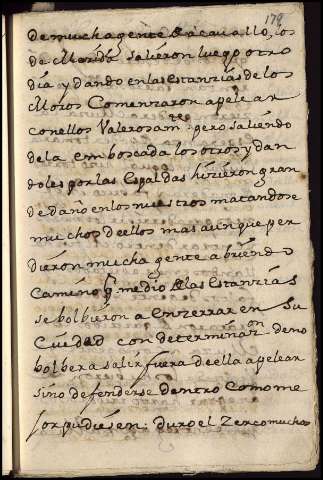 179
de mucha gente de acavallo, los
de Merida salieron luego otro
dia y dando en las estanzias de los
Moros Comenzaron a pelear
con ellos Valerosam.te pero saliendo
de la emboscada los otros y dan
doles por las espaldas hizieron gran
de daño en los nuestros matandose
muchos de ellos mas aunque per
dieron mucha gente abriendo
Camino p medio de las estanzias
se bolbieron a enzerrar en su
Cuidad con determinaz.on de no
bolber a salir fuera de ella a pelear
sino defenderse dentro Como me
jor pudiesen: duro el Zerco mucho